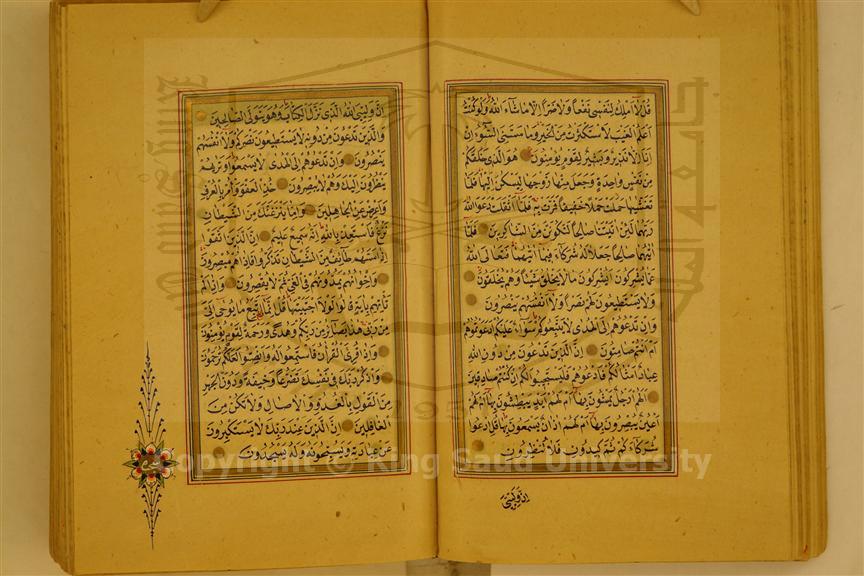 قل لا املك لنفسي نفعا ولا ضرا الا ما شاء الله ولو كنت
اعلم الغيب لاستكثرت من الخير وما مسني السوء ان
انا الا نذير وبشير لقوم يؤمنون هو الذي خلقكم
من نفس واحدة وجعل منها زوجها ليسكن اليها فلما
تغشيها حملت حملا خفيفا فمرت به فلما اثقلت دعوا الله
ربهما لئن اتيتنا صالحا لنكونن من الشاكرين فلما
اتيهما صالحا جعلا له شركاء فيما اتيهما فتعالى الله
عما يشركون ايشركون ما لا يخلق شيئا وهم يخلقون
ولا يستطيعون لهم نصرا ولا انفسهم ينصرون
وان تدعوهم الى الهدى لا يتبعوكم سواء عليكم ادعوتموهم
ام انتم صامتون ان الذين تدعون من دون الله
عباد امثالكم فادعوهم فليستجيبوا لكم ان كنتم صادقين
الهم ارجل يمشون بها ام لهم ايد يبطشون بها ام لهم
اعين يبصرون بها ام لهم اذان يسمعون بها قل ادعوا
شركاءكم ثم كيدون فلا تنظرون
ان وليي
ان وليي الله الذي نزل الكتاب وهو يتولى الصالحين
والذين تدعون من دونه لا يستطيعون نصركم ولا انفسهم
ينصرون وان تدعوهم الى الهدى لا يسمعوا وتريهم
ينظرون اليك وهم لا يبصرون خذ العفو وأمر بالعرف
واعرض عن الجاهلين واما ينزغنك من الشيطان
نزغ فاستعذ بالله انه سميع عليم ان الذين اتقوا
اذا مسهم طائف من الشيطان تذكروا فاذا هم مبصرون
واخوانهم يمدونهم في الغي ثم لا يقصرون واذا لم
تأتهم بآية قالوا لولا اجتبيتها قل انما اتبع ما يوحى الي
من ربي هذا بصائر من ربكم وهدى ورحمة لقوم يؤمنون
واذا قرئ القرآن فاستمعوا له وانصتوا لعلكم ترحمون
واذكر ربك في نفسك تضرعا وخيفة ودون الجهر
من القول بالغدو والآصال ولا تكن من
الغافلين ان الذين عند ربك لا يستكبرون
عن عبادته ويسبحونه وله يسجدون
Copyright © King Saud University
1957